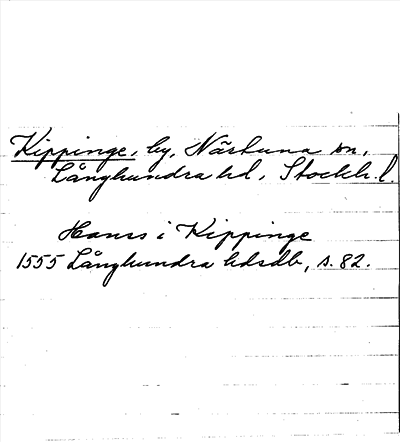 Kippinge, by, Närtuna sn,
Långhundra hd, Stockh. l.
Hans i Kippinge
1555 Långhundra hdsdb, s. 82.